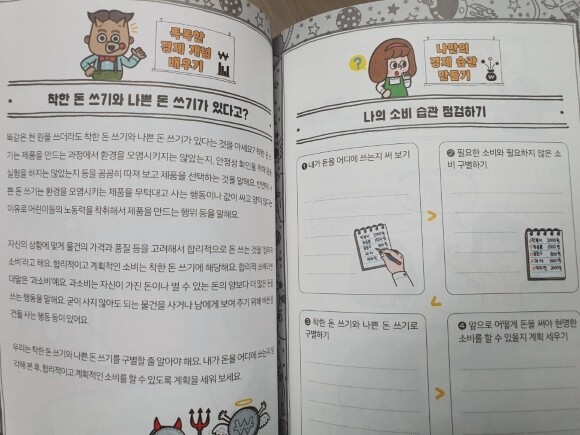 똑똑한
경제 개념
배우기
착한 돈 쓰기와 나쁜 돈 쓰기가 있다고?
똑같은 천 원을 쓰더라도 착한 돈 쓰기와 나쁜 돈 쓰기가 있다는 것을 아세요? 착한 돈 쓰
기는 제품을 만드는 과정에서 환경을 오염시키지는 않았는지, 안정성 확인을 위해
실험을 하지는 않았는지 등을 꼼꼼히 따져 보고 제품을 선택하는 것을 말해요. 반면에 나
쁜 돈 쓰기는 환경을 오염시키는 제품을 무턱대고 사는 행동이나 값이 싸고 양이 많다는
이유로 어린이들의 노동력을 착취해서 제품을 만드는 행위 등을 말해요.
자신의 상황에 맞게 물건의 가격과 품질 등을 고려해서 합리적으로 돈 쓰는 것을
소비'라고 해요. 합리적이고 계획적인 소비는 착한 돈 쓰기에 해당해요. 합리적 소비의 반
대말은 '과소비'예요. 과소비는 자신이 가진 돈이나 벌 수 있는 돈의 양보다 더 많은 돈을
쓰는 행동을 말해요. 굳이 사지 않아도 되는 물건을 사거나 남에게 보여 주기 위해 비싼 물
건을 사는 행동 등이 있어요.
우리는 착한 돈 쓰기와 나쁜 돈 쓰기를 구별할 줄 알아야 해요. 내가 돈을 어디에 쓰는지 생
각해 본 후, 합리적이고 계획적인 소비를 할 수 있도록 계획을 세워 보세요.
나만의
경제 습관
만들기
나의 소비 습관 점검하기
❶ 내가 돈을 어디에 쓰는지 써 보기
❷ 필요한 소비와 필요하지 않은 소
비 구별하기
❸ 착한 돈 쓰기와 나쁜 돈 쓰기로
구별하기
❹ 앞으로 어떻게 돈을 써야 현명한
소비를 할 수 있을지 계획 세우기